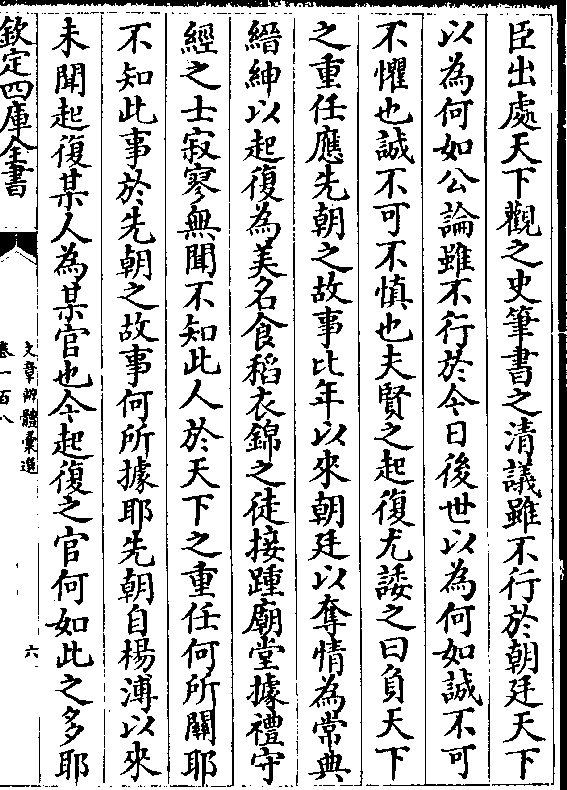 臣出處天下觀之史筆書之清議雖不行於朝廷天下
以為何如公論雖不行於今日後世以為何如誠不可
不懼也誠不可不慎也夫賢之起復尤諉之曰負天下
之重任應先朝之故事比年以來朝廷以奪情為常典
縉紳以起復為美名食稻衣錦之徒接踵廟堂據禮守
經之士寂寥無聞不知此人於天下之重任何所關耶
不知此事於先朝之故事何所據耶先朝自楊溥以來
未聞起復某人為某官也今起復之官何如此之多耶
欽定四庫全書
文章辨體彙選
卷一百八
六